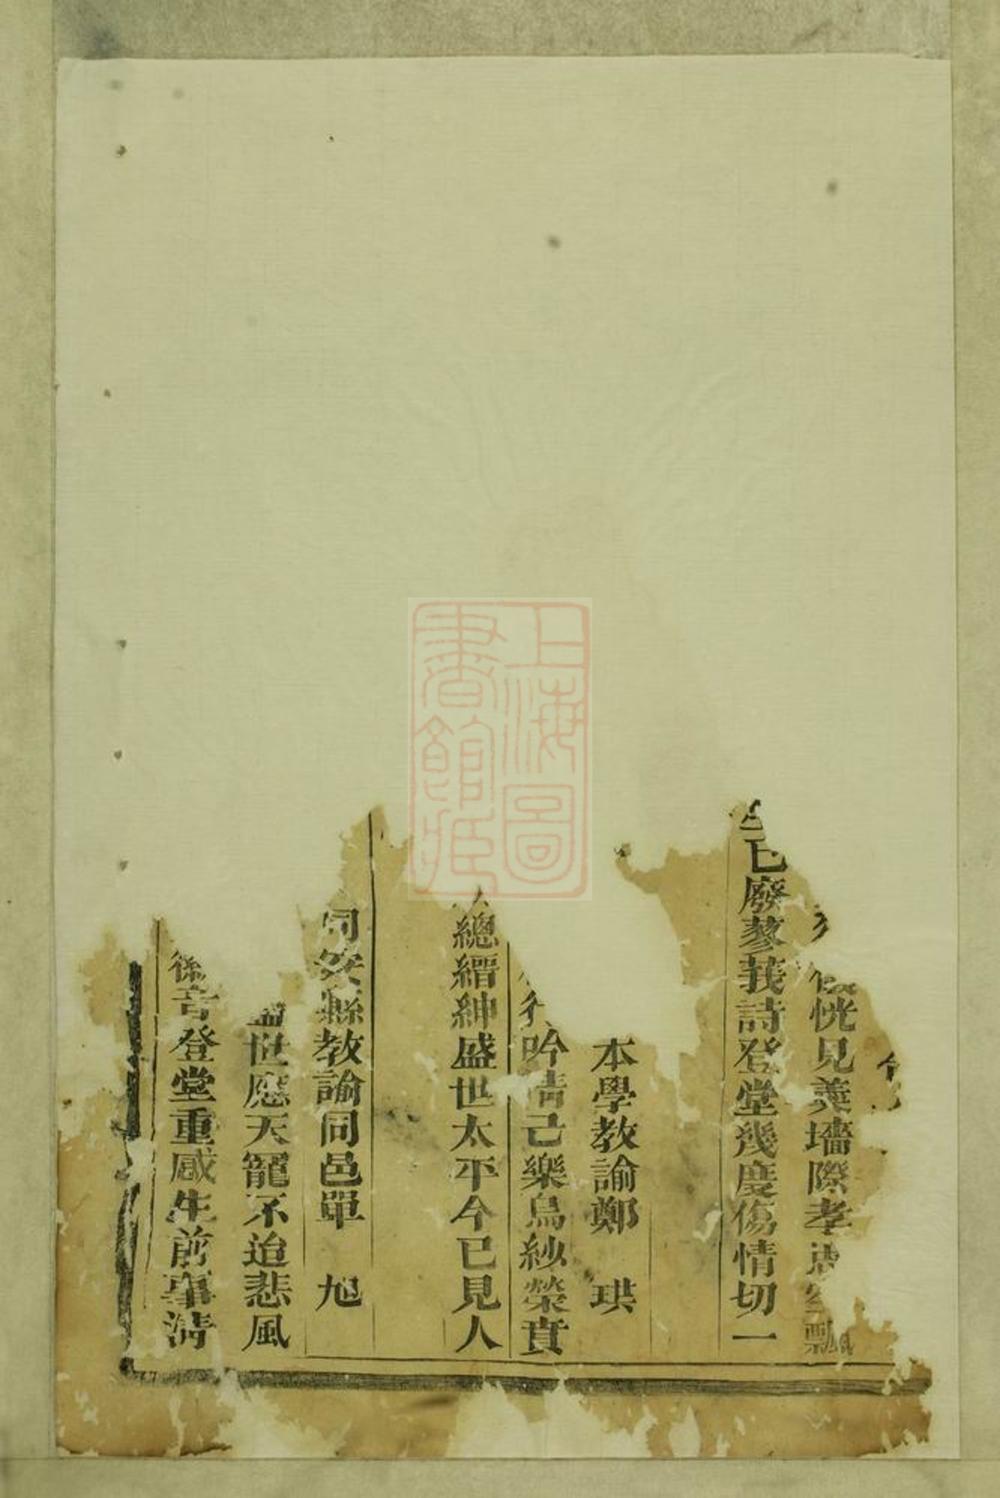 恍見羹墻際孝
已廢蓼莪詩登堂幾度傷情切一
本學教諭鄭　珙
吟情己樂烏紗榮賁
總縉紳盛世太平今已見人
同安縣教諭同邑單　旭
世應天寵不迨悲風
音登堂重感生前事淸
上海圖書館藏